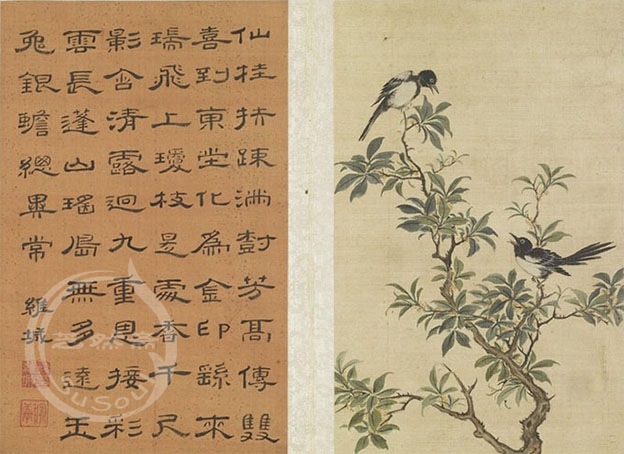 仙桂扶疎滿樹芳高傳雙
喜到東堂化為金印繇來
瑞飛上瓊枝是處香千尺
影含清露迥九重恩接彩
雲長蓬山瑤島無多遠玉
兔銀蟾總異常
維城